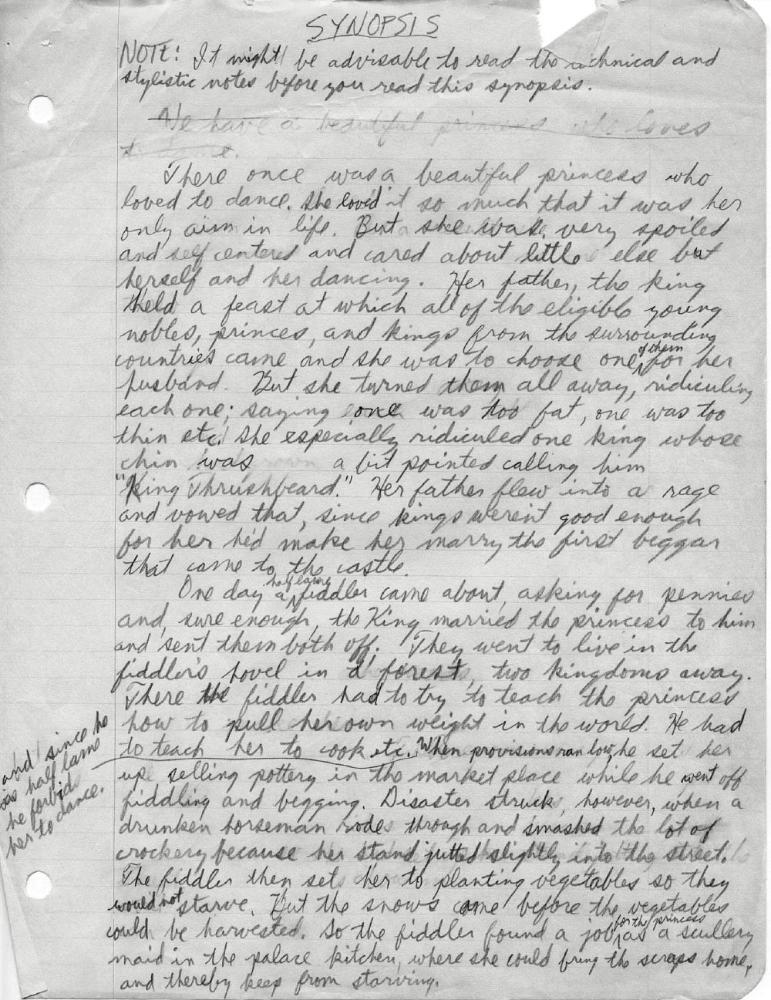 SYNOPSIS
NOTE: It might be advisable to read the technical and
stylistic notes before you read this synopsis.
We have a beautiful princess who loves
to dance.
There once was a beautiful princess who
loved to dance. She loved it so much that it was her
only aim in life. But she was very spoiled
and self centered and cared about little else but
herself and her dancing. Her father, the king
held a feast at which all of the eligible young
nobles, princes, and kings from the surrounding
countries came and she was to choose one of them for her
husband. But she turned them all away, ridiculing
each one; saying one was too fat, one was too
thin etc. She especially ridiculed one king whose
chin was a bit pointed calling him
"King Thrushbeard." Her father flew into a rage
and vowed that, since kings weren't good enough
for her he'd make her marry the first beggar
that came to the castle.
One day a half lame fiddler came about, asking for pennies
and, sure enough, the King married the princess to him
and sent them both off. They went to live in the
fiddler's hovel in a forest, two kingdoms away.
There the fiddler had to try to teach the princess
how to pull her own weight in the world. He had
to teach her to cook etc. When provisions ran low, he set her
and since he
was half lame
he forbid
her to dance.
up selling pottery in the market place while he went off
fiddling and begging. Disaster struck, however, when a
drunken horseman rode through and smashed the lot of
crockery because her stand jutted slightly into the street.
The fiddler then sets her to planting vegetables so they
would not starve. But the snows came before the vegetables
could be harvested. So the fiddler found a job for the princess as a scullery
maid in the palace kitchen, where she could bring the scraps home,
and thereby keep from starving.